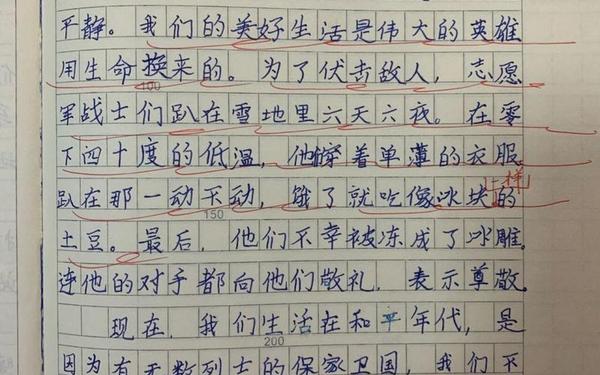 平静。我们的美好生活是伟大的英雄
用生命换来的。为了伏击敌人，志愿
100
军战士们趴在雪地里六天六夜。在零
下四十度的低温，他穿着单薄的衣服
一样
趴在那一动不动，饿了就吃像冰块的
150
土豆。最后，他们不幸被冻成了冰雕。
连他的对手都向他们敬礼，表示尊敬。
现在，我们生活在和平年代，是
200
因为有无数烈士的保家卫国，我们不